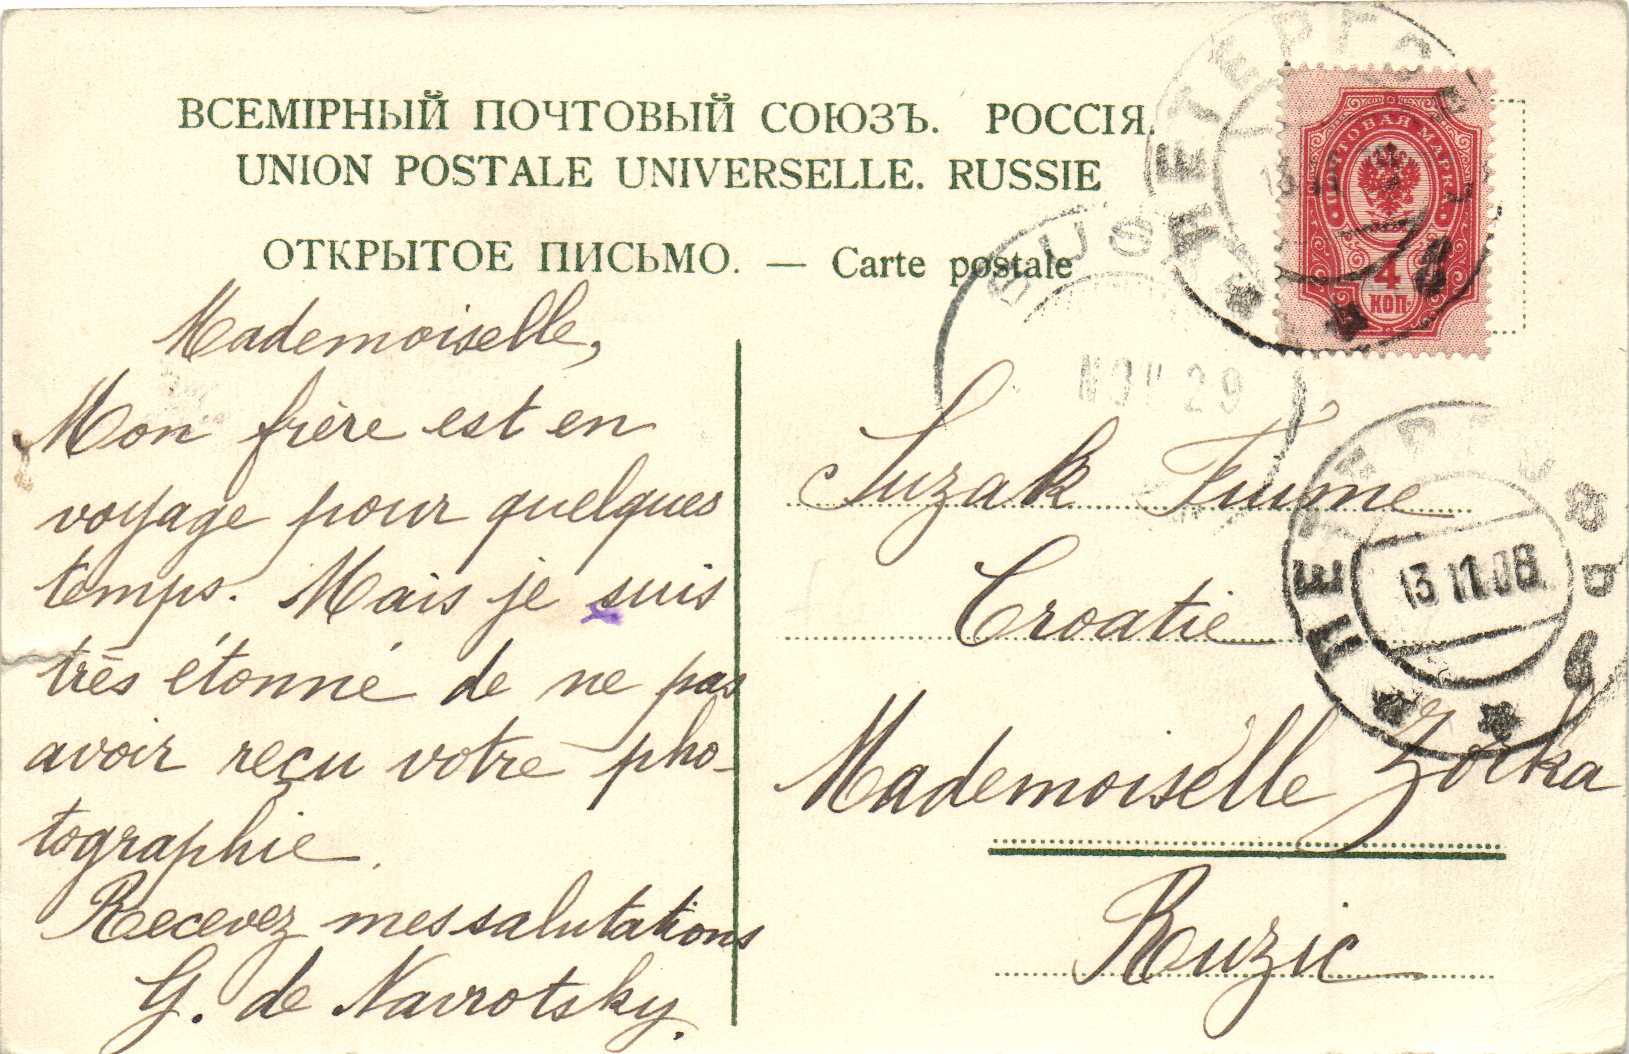 ВСЕМІРНЫЙ ПОЧТОВЫЙ СОЮЗЪ. РОССІЯ.
UNION POSTALE UNIVERSELLE. RUSSIE
ОТКРЫТОЕ ПИСЬМО. — Carte postale
Mademoiselle,
Mon frère est en
voyage pour quelques
temps. Mais je suis
très étonné de ne pas
avoir reçu votre pho-
tographie.
Recevez mes salutations
G. de Navrotsky.
ПОЧТОВАЯ МАРКА
4
КОП.
ПЕТЕРГОФЪ
NOV 29
Suzak Fiume
Croatie
Mademoiselle Zorka
Ruzic
ПЕТЕРГОФЪ
13 11.08